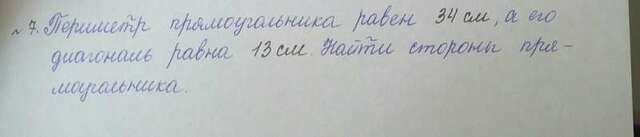 №7. Периметр прямоугольника равен 34 см, а его
диагональ равна 13 см Найти стороны пря-
моугольника.